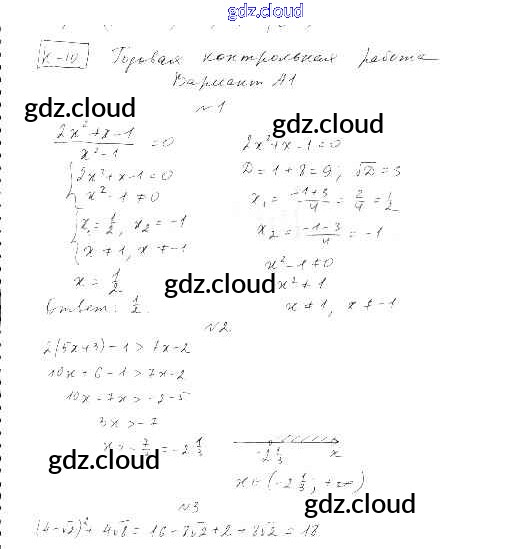 gdz.cloud
К-10 Годовая контрольная работа
Вариант А1
gdz.cloud
№1
gdz.cloud
(2x²+x-1)/(x²-1) = 0
{ 2x²+x-1=0
x²-1≠0
{ x₁=1/2, x₂=-1
x≠1, x≠-1
x=1/2
Ответ: 1/2.
2x²+x-1=0
D=1+8=9; √D=3
x₁=(-1+3)/4=2/4=1/2
x₂=(-1-3)/4=-1
x²-1≠0
x²≠1
x≠1, x≠-1
gdz.cloud
№2
2(5x+3)-1>7x-2
10x+6-1>7x-2
10x-7x>-2-5
3x>-7
x>-7/3=-2 1/3
-2 1/3 x
x∈(-2 1/3; +∞)
gdz.cloud
gdz.cloud
№3
(4-√2)²+4√8=16-8√2+2+8√2=18